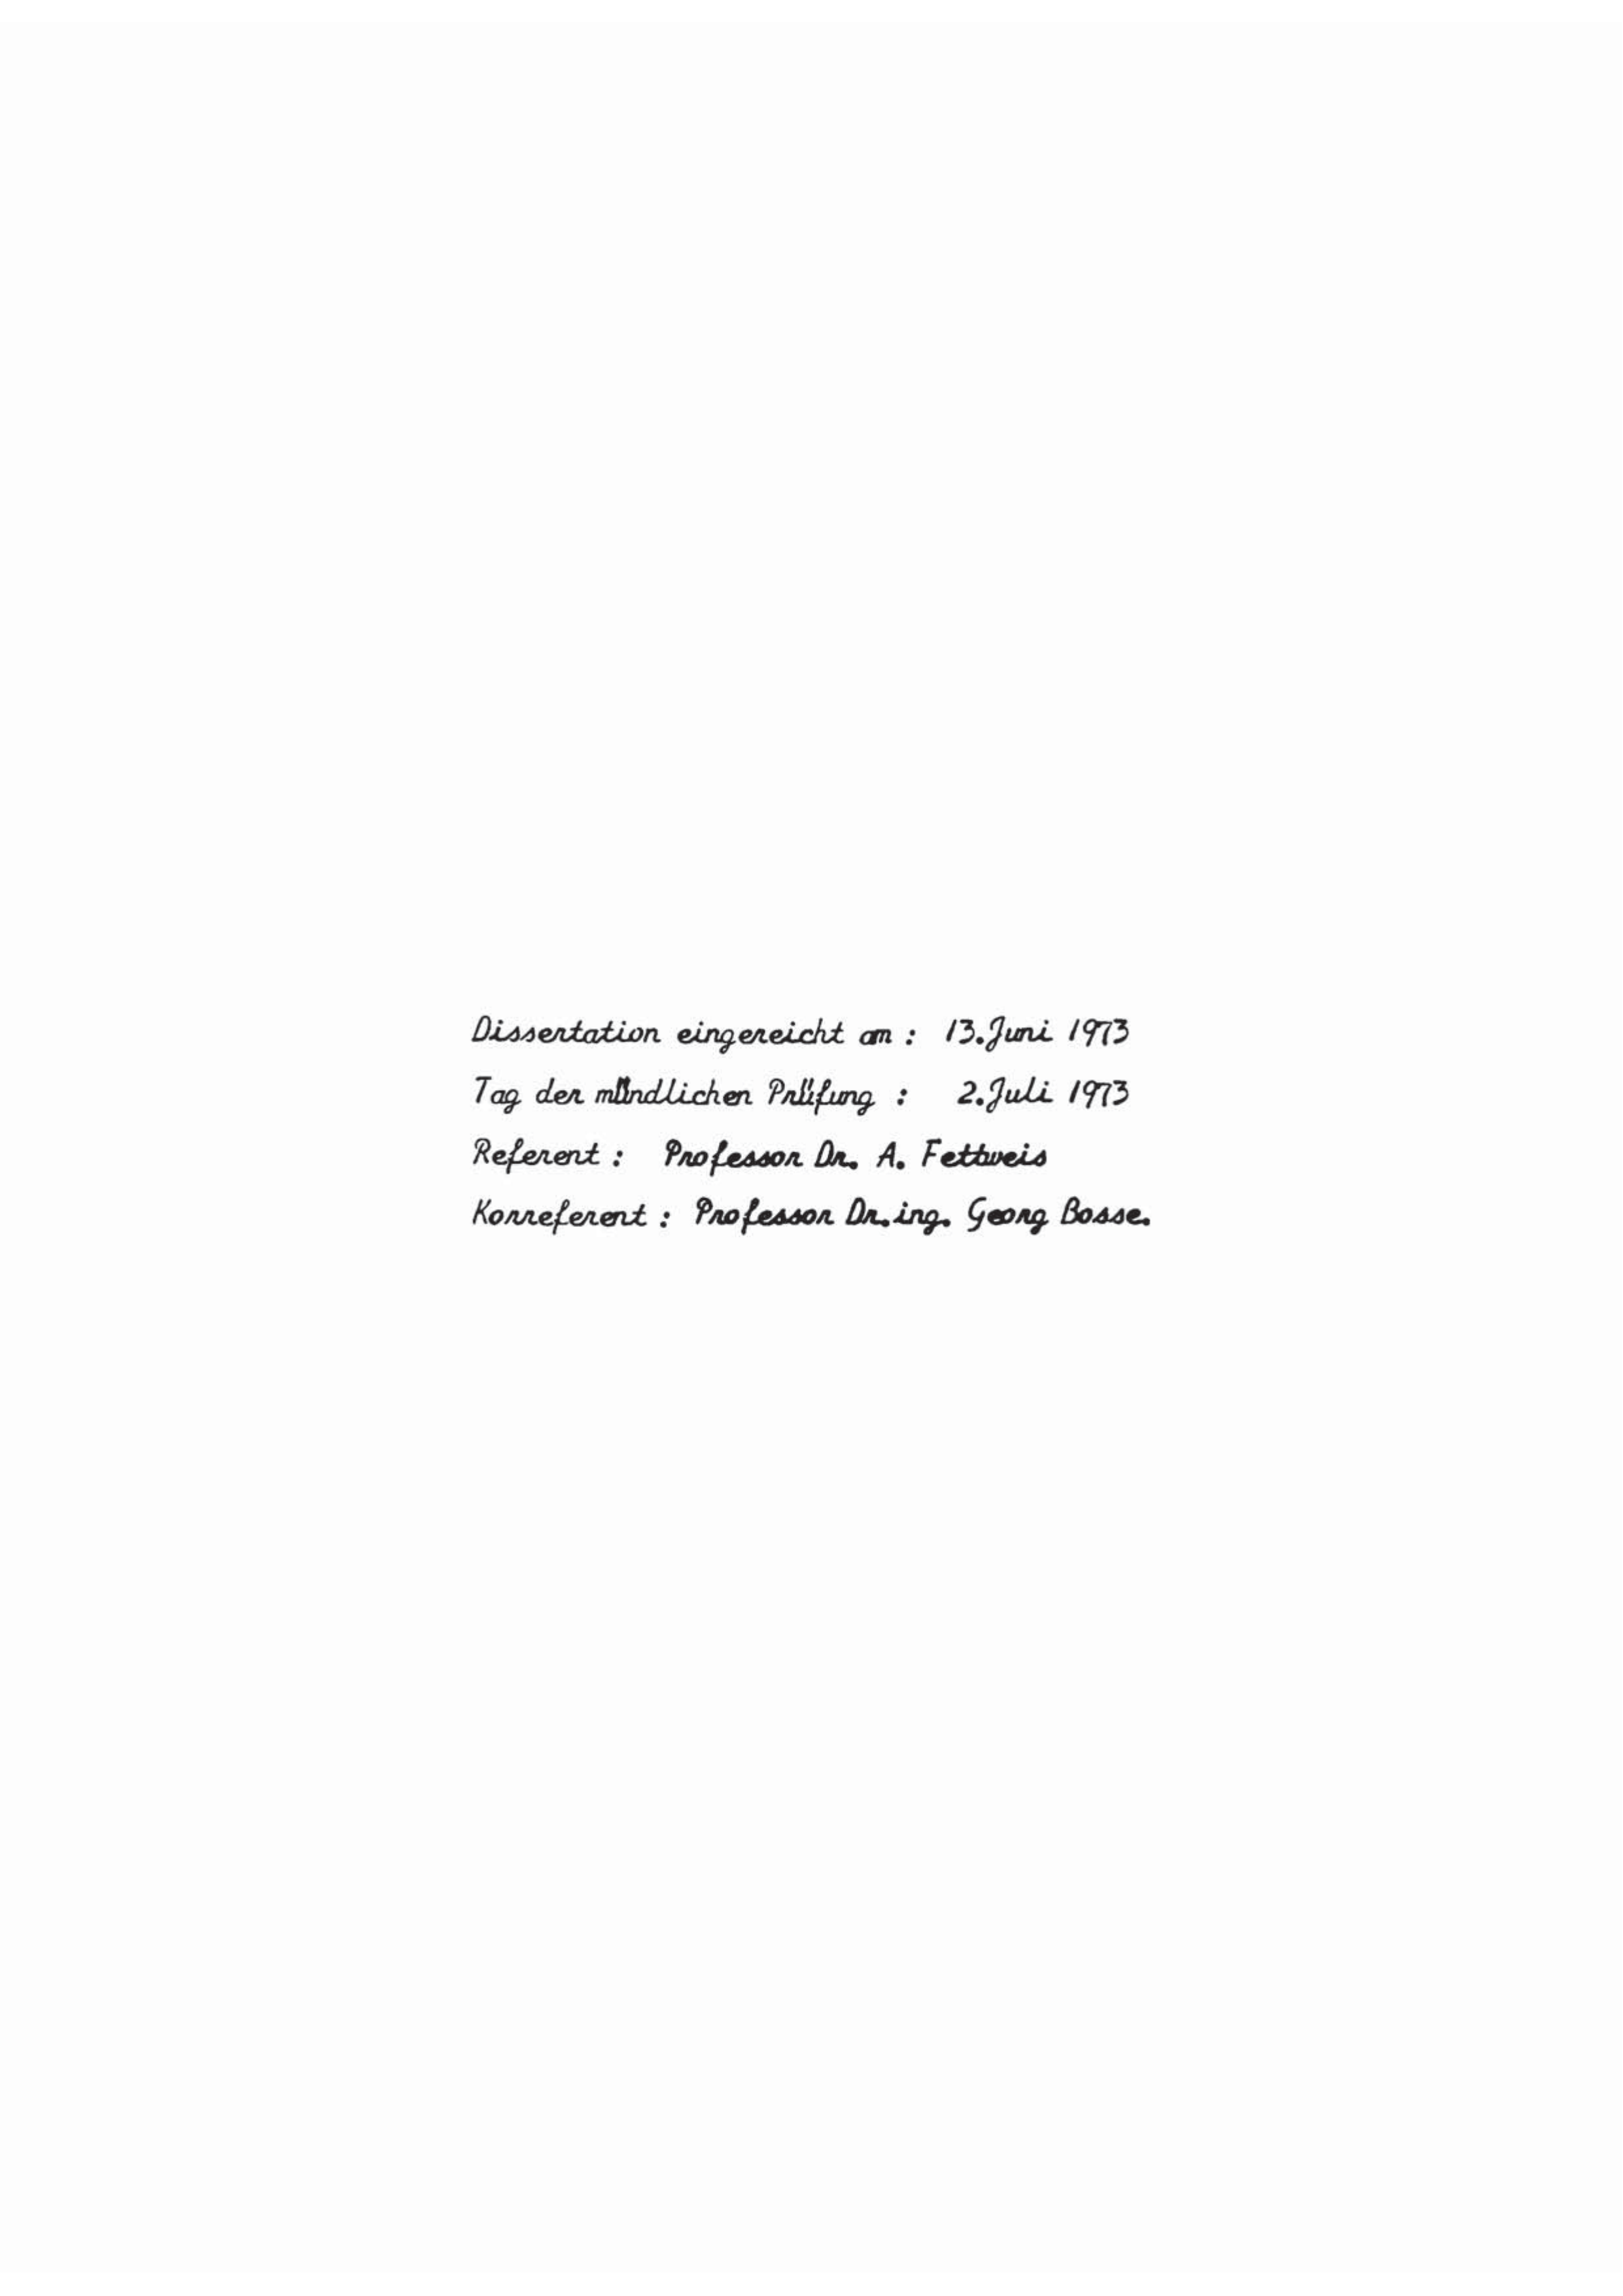 Dissertation eingereicht am : 13. Juni 1973
Tag der mündlichen Prüfung : 2. Juli 1973
Referent : Professor Dr. A. Fettweis
Korreferent : Professor Dr. ing. Georg Bosse.